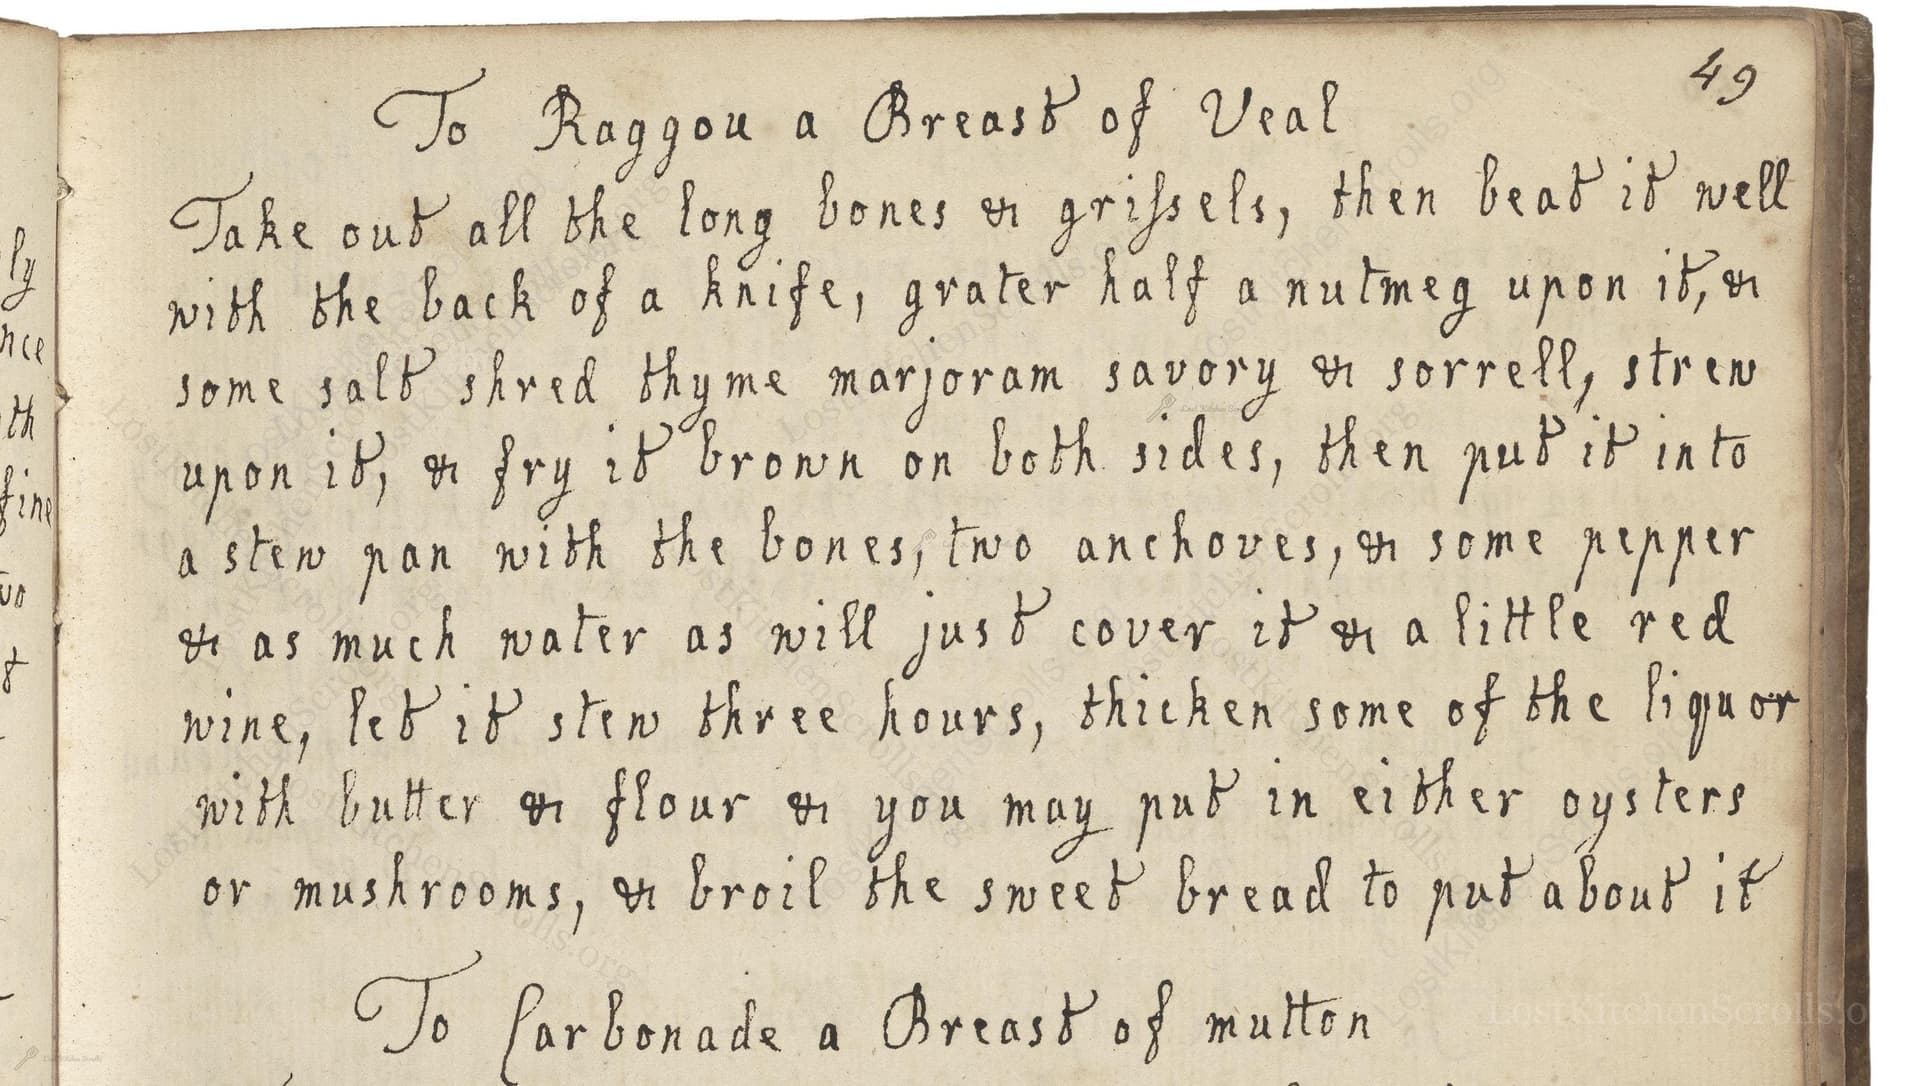 49
To Raggou a Breast of Veal
Take out all the long bones & grissels, then beat it well
with the back of a knife, grater half a nutmeg upon it, &
some salt shred thyme marjoram savory & sorrell, strew
upon it, & fry it brown on both sides, then put it into
a stew pan with the bones, two anchoves, & some pepper
& as much water as will just cover it & a little red
wine, let it stew three hours, thicken some of the liquor
with butter & flour & you may put in either oysters
or mushrooms, & broil the sweet bread to put about it
To Carbonade a Breast of mutton
ly
nce
th
fine
LostKitchenScrolls.o